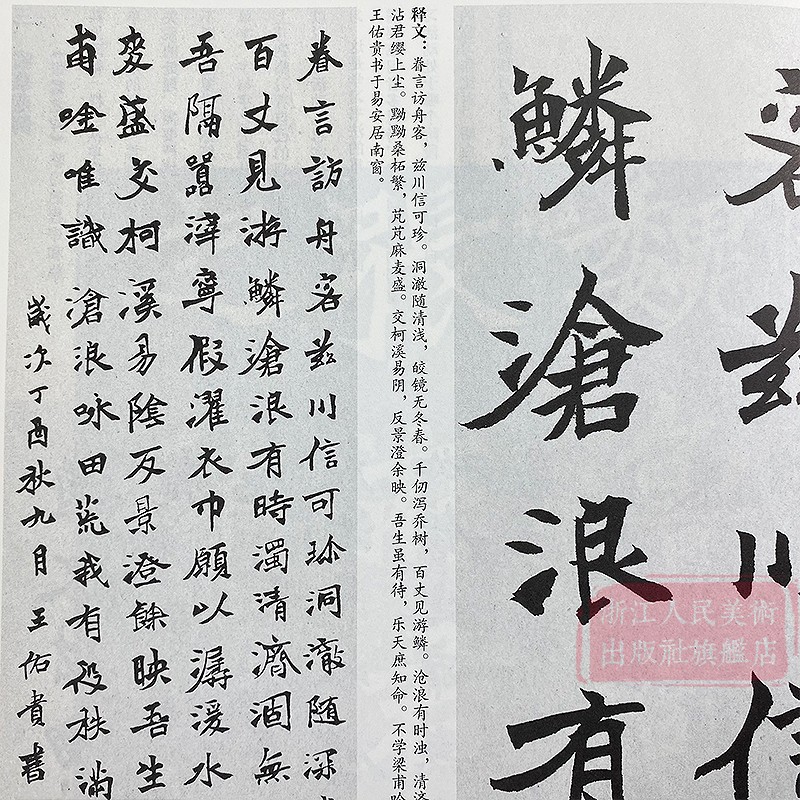 客兹川信
鱗滄浪有
释文：眷言访舟客，兹川信可珍。洞澈随清浅，皎镜无冬春。千仞泻乔树，百丈见游鳞。沧浪有时浊，清济
沾君缨上尘。黝黝桑柘繁，芃芃麻麦盛。交柯溪易阴，反景澄余映。吾生虽有待，乐天庶知命。不学梁甫吟
王佑贵书于易安居南窗。
眷言訪舟客兹川信可珎洞澈随深
百丈見游鱗滄浪有時濁清濟涸無
吾隔囂滓寧假濯衣巾願以潺湲水
麥盛交柯溪易陰反景澄餘映吾生
甫唫唯識滄浪咏田荒我有役秩滿
歲次丁酉秋九月王佑貴書
浙江人民美術
出版社旗艦店